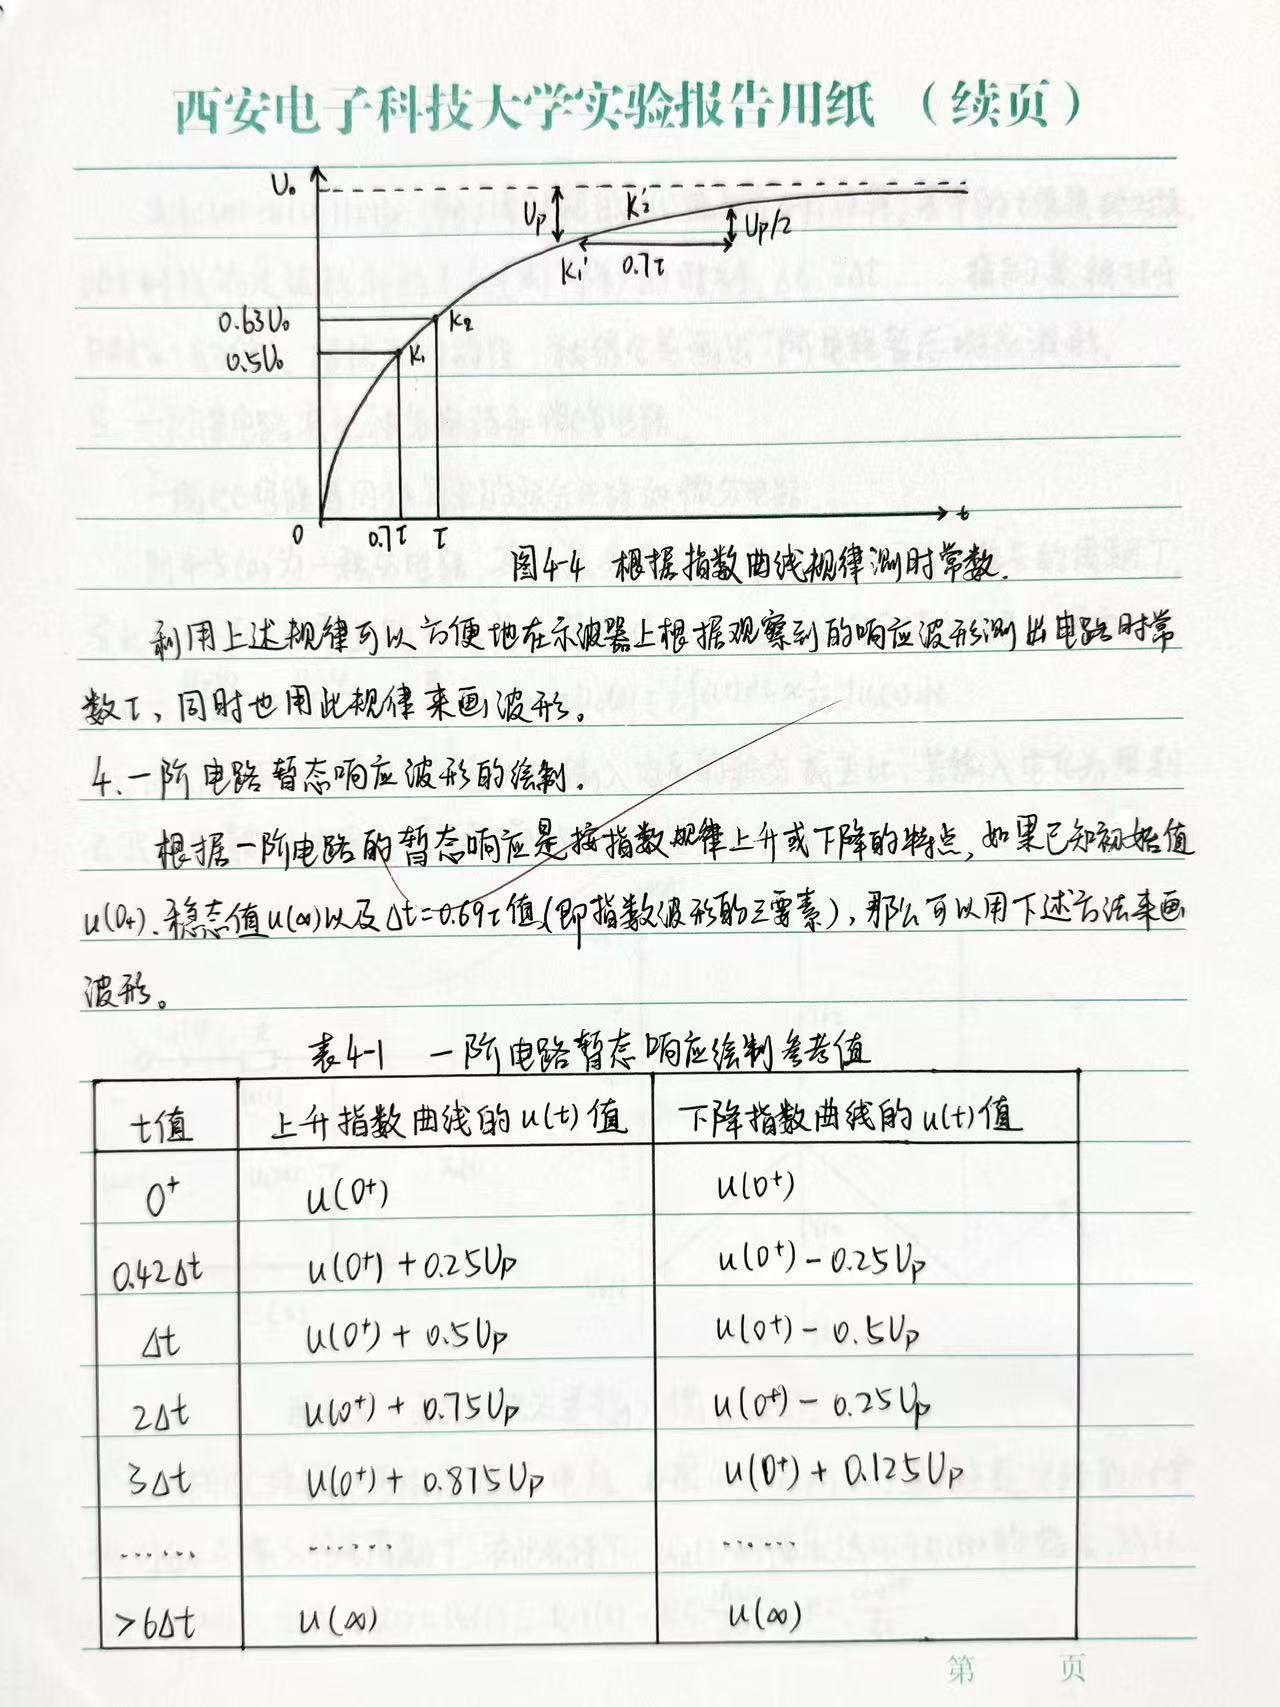 西安电子科技大学实验报告用纸 (续页)
U₀
Up
K₂'
Up/2
K₁'
0.7τ
0.63U₀
K₂
0.5U₀
K₁
0
0.7τ
τ
t
图4-4 根据指数曲线规律测时常数.
利用上述规律可以方便地在示波器上根据观察到的响应波形测出电路时常
数τ,同时也用此规律来画波形。
4、一阶电路暂态响应波形的绘制.
根据一阶电路的暂态响应是按指数规律上升或下降的特点,如果已知初始值
u(0+)、稳态值u(∞)以及Δt=0.69τ值(即指数波形的三要素),那么可以用下述方法来画
波形。
表4-1 一阶电路暂态响应绘制参考值
t值 上升指数曲线的u(t)值 下降指数曲线的u(t)值
0⁺ u(0⁺) u(0⁺)
0.42Δt u(0⁺)+0.25Up u(0⁺)-0.25Up
Δt u(0⁺)+0.5Up u(0⁺)-0.5Up
2Δt u(0⁺)+0.75Up u(0⁺)-0.25Up
3Δt u(0⁺)+0.875Up u(0⁺)+0.125Up
...... ...... ......
>6Δt u(∞) u(∞)
第 页